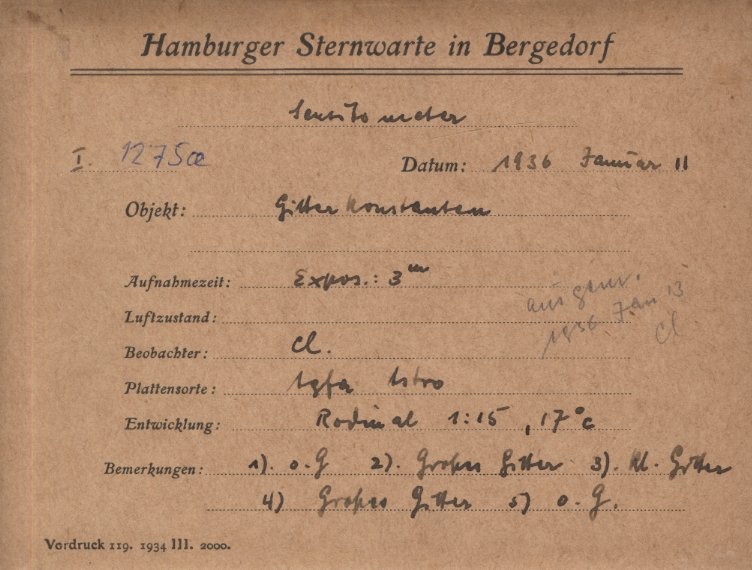 Hamburger Sternwarte in Bergedorf
Sensitometer
I. 1275a Datum: 1936 Januar 11
Objekt: Gitterkonstanten
Aufnahmezeit: Expos.: 3ᵐ
ausgem.
Luftzustand: 1936 Jan 13
Beobachter: Cl. Cl
Plattensorte: Agfa Astro
Entwicklung: Rodinal 1:15, 17°C
Bemerkungen: 1). o.G 2). Großes Gitter 3). Kl. Gitter
4) Großes Gitter 5) o.G.
Vordruck 119. 1934 III. 2000.